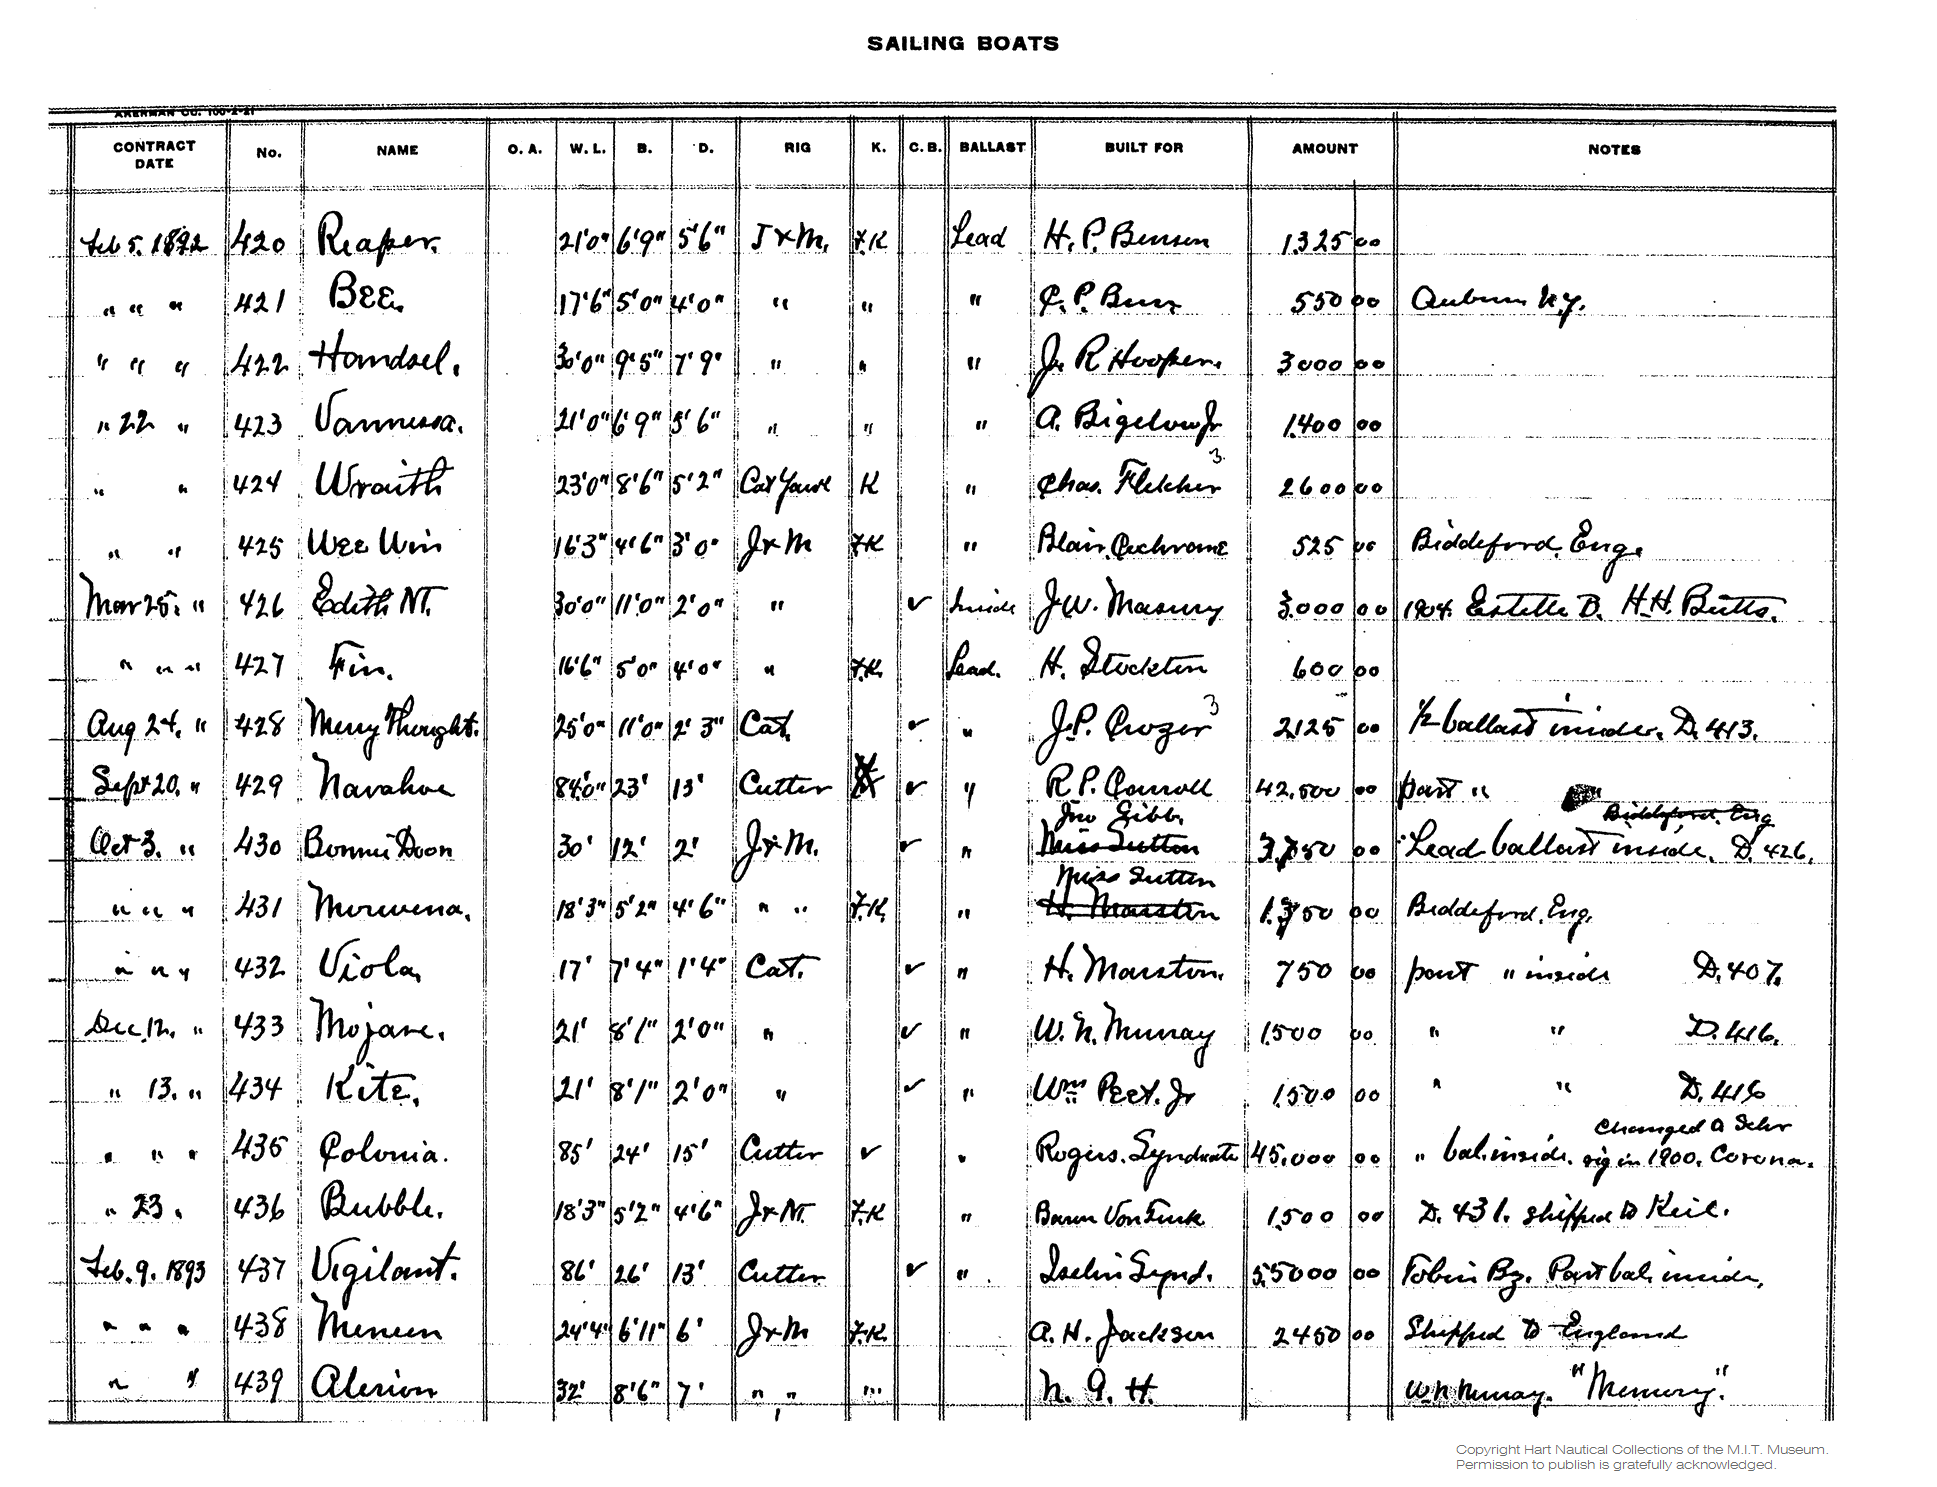 SAILING BOATS
AKERMAN CO. 100-2-21
CONTRACT DATE No. NAME O. A. W. L. B. D. RIG K. C. B. BALLAST BUILT FOR AMOUNT NOTES
Feb 5. 1892 420 Reaper. 21'0" 6'9" 5'6" J & M. F.K Lead H. P. Benson 1325 00
" " " 421 BEE. 17'6" 5'0" 4'0" " " " C. P. Burr 550 00 Auburn N.Y.
" " " 422 Handsel. 30'0" 9'5" 7'9" " " " J. R Hooper. 3000 00
" 22 " 423 Vannessa. 21'0" 6'9" 5'6" " " " A. Bigelow Jr 1400 00
" " 424 Wraith 23'0" 8'6" 5'2" Cat Yawl K " Chas. Fletcher 3 2600 00
" " 425 WEE Win 16'3" 4'6" 3'0" J & M F.K " Blair Cochrane 525 00 Biddeford. Eng.
Mar 25. " 426 Edith M. 30'0" 11'0" 2'0" " ✓ Inside J.W. Masury 3.000 00 1904. Estelle B. H.H. Butts.
" " " 427 Fin. 16'6" 5'0" 4'0" " F.K. Lead. H. Stockton 600 00
Aug 24. " 428 Merry Thought. 25'0" 11'0" 2'3" Cat. ✓ " J.P. Crozer 3 2125 00 1/2 ballast inside. D. 413.
Sept 20. " 429 Navahoe 84'0" 23' 13' Cutter ✓ " R P. Carroll 42.500 00 part " "
Jno Gibb. Biddeford. Eng
Oct 3. " 430 Bonnie Doon 30' 12' 2' J & M. ✓ " Miss Sutton 3,750 00 Lead ballast inside. D. 426.
Miss Sutton
" " " 431 Morwena. 18'3" 5'2" 4'6" " " F.K. " H. Marston 1.350 00 Biddeford. Eng.
" " " 432 Viola. 17' 7'4" 1'4" Cat. ✓ " H. Marston. 750 00 part " inside D. 407.
Dec. 12. " 433 Mojave. 21' 8'1" 2'0" " ✓ " W. N. Murray 1500 00 " " D. 416.
" 13. " 434 Kite. 21' 8'1" 2'0" " ✓ " Wm Peet. Jr 1500 00 " " D. 416
Changed a Schr
" " " 435 Colonia. 85' 24' 15' Cutter ✓ " Rogers. Syndicate 45.000 00 " bal. inside. rig in 1900. Corona.
" 23 " 436 Bubble. 18'3" 5'2" 4'6" J & M. F.K " Baron Von 1500 00 D. 431. shipped to Keil.
Feb. 9. 1893 437 Vigilant. 86' 26' 13' Cutter ✓ " Iselin Synd. 55000 00 Tobin Bz. Part bal. inside.
" " " 438 Meneen 24'4" 6'11" 6' J & M F.K. A. H. Jackson 2450 00 Shipped to England
" " 439 Alerion 32' 8'6" 7' " " " N. G. H. W N Murray. "Memory".
Copyright Hart Nautical Collections of the M.I.T. Museum.
Permission to publish is gratefully acknowledged.